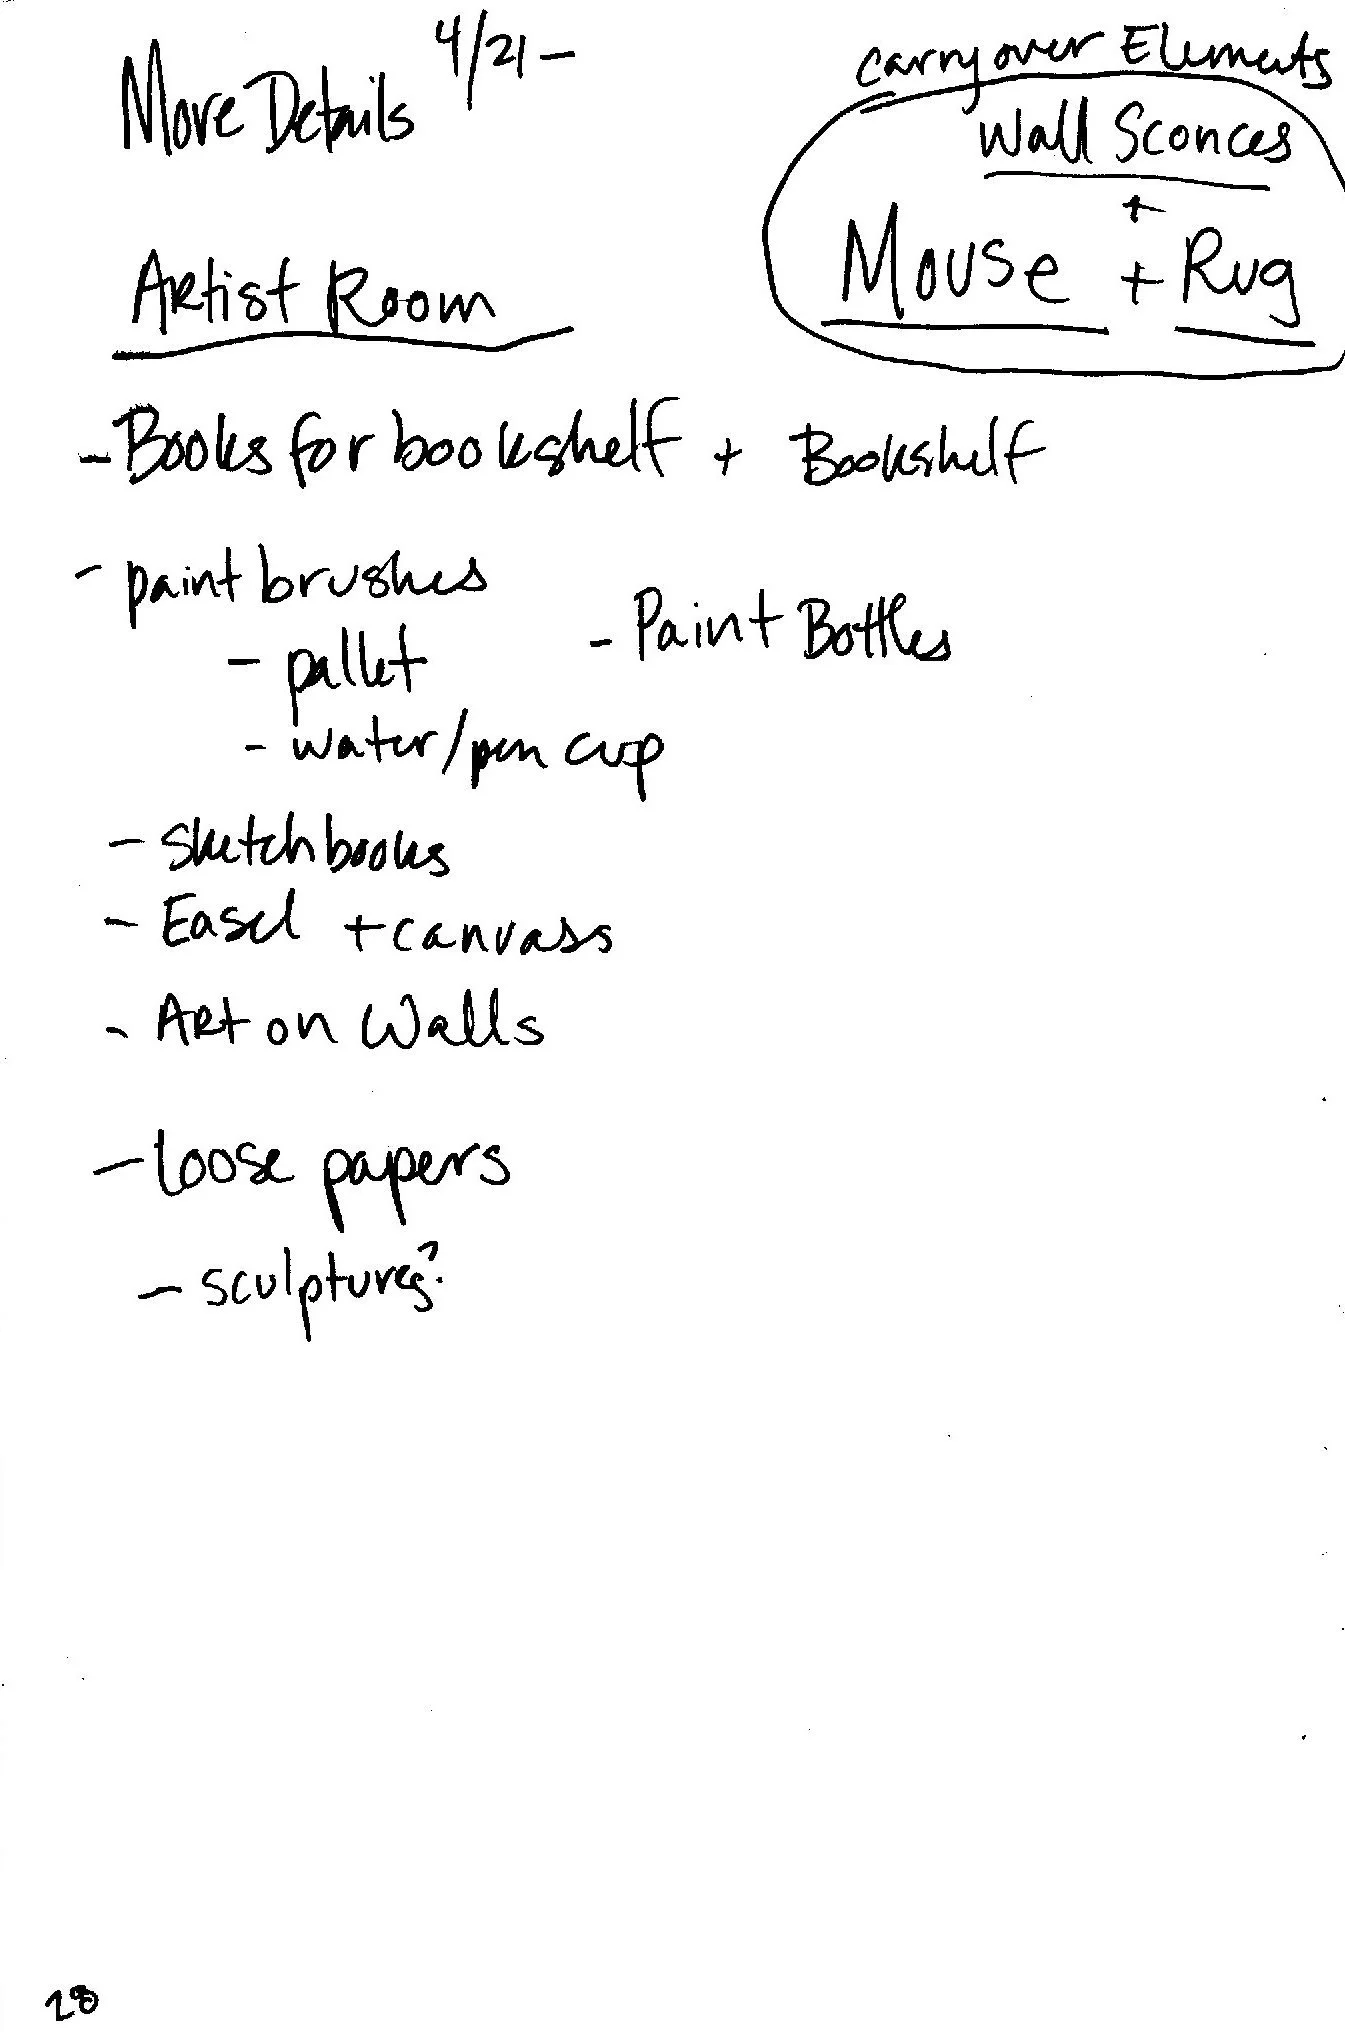 More Details 4/21 –
carryover Elements
Wall Sconces
+
Mouse + Rug
Artist Room
- Books for bookshelf + Bookshelf
- paint brushes
- Paint Bottles
- pallet
- water/pen cup
- sketchbooks
- Easel + canvass
- Art on Walls
- loose papers
- sculptures?
28